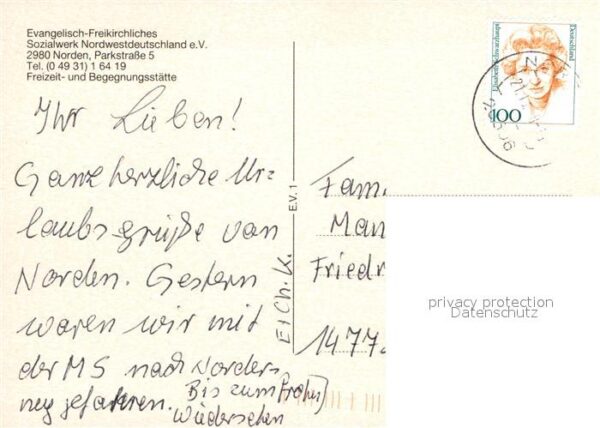 Evangelisch-Freikirchliches
Sozialwerk Nordwestdeutschland e.V.
2980 Norden, Parkstraße 5
Tel. (0 49 31) 1 64 19
Freizeit- und Begegnungsstätte
Ihr Lieben!
Ganz herzliche Ur-
laubsgrüße von
Norden. Gestern
waren wir mit
der MS nach Norder-
ney gefahren. Bis zum frohen
Wiedersehen
E. V. 1
E. Ch. K.
Elisabeth Schwarzhaupt
Deutschland
100
Fam.
Man
Friedr
1477
privacy protection
Datenschutz